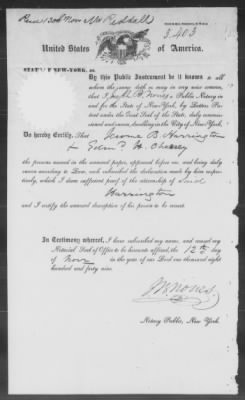 3403
United States of America.
STATE OF NEW-YORK, ss.
By this Public Instrument be it known to all
whom the same doth or may in any wise concern,
that I Joseph B. Nones, Public Notary in
and for the State of New-York, by Letters Patent
under the Great Seal of the State, duly commissioned
and sworn, dwelling in the City of New-York,
Do hereby Certify, That Jerome B. Harrington
& Edm. H.
the persons named in the annexed paper, appeared before me, and being duly
sworn according to Law, each subscribed the declaration made by him respectively,
which I deem sufficient proof of the citizenship of said
Harrington
and I certify the annexed description of his person to be correct.
In Testimony whereof, I have subscribed my name, and caused my
Notarial Seal of Office to be hereunto affixed, the 12th day
of Nov in the year of our Lord one thousand eight
hundred and forty nine.
J B Nones
Notary Public, New York